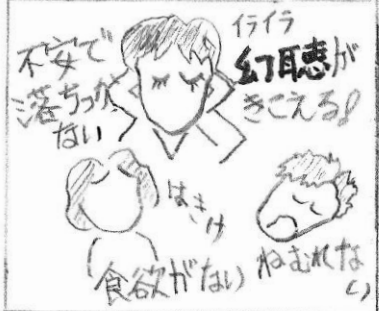 不安で
落ちつか
ない
イライラ
幻聴が
きこえる!
はきけ
食欲がない
ねむれな
い